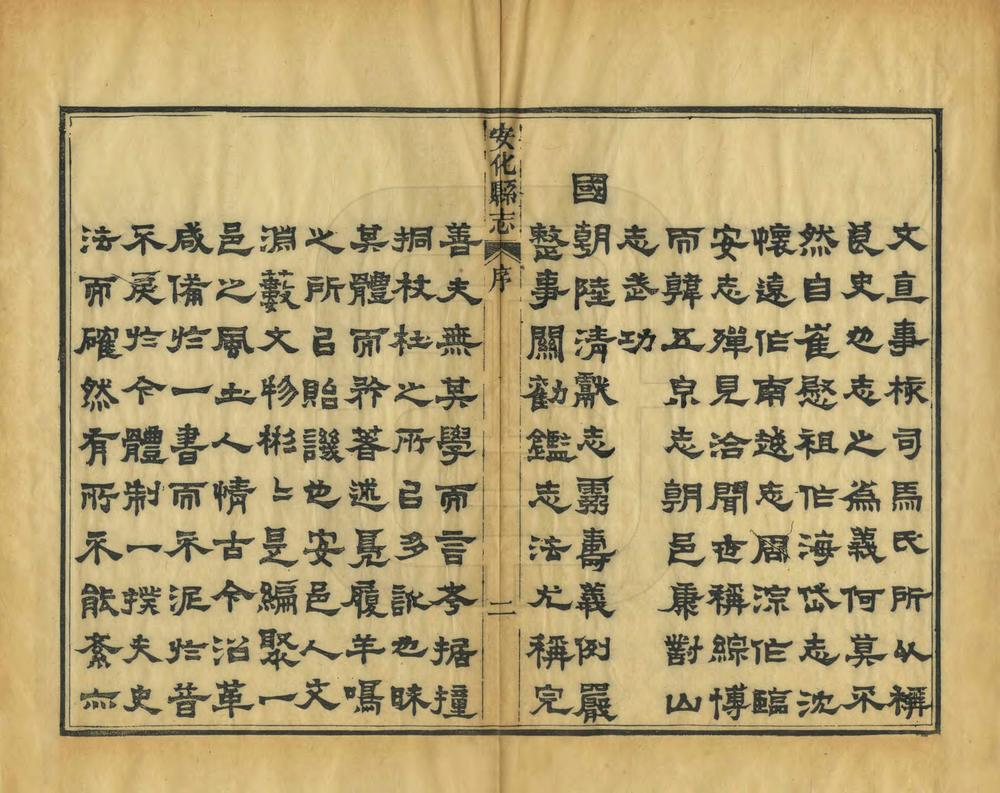 文直事核司馬氏所以稱
良史也志之為義何莫不
然自崔慰祖作海岱志沈
懷遠作南越志周淙作臨
安志殫見洽聞世稱綜博
而韓五泉志朝邑康對山
志武功
國朝陸清獻志靈壽義例嚴
整事關勸鑑志法尤稱完
安化縣志 序 二
善夫無其學而言考據撞
挏杖杜之所㠯多訛也昧
其體而矜著述鳧履羊鳴
之所㠯貽譏也安邑人文
淵藪文物彬〻是編聚一
邑之風土人情古今沿革
咸備於一書而不泥於昔
不戾於今體制一揆夫史
法而確然有所不能紊亦